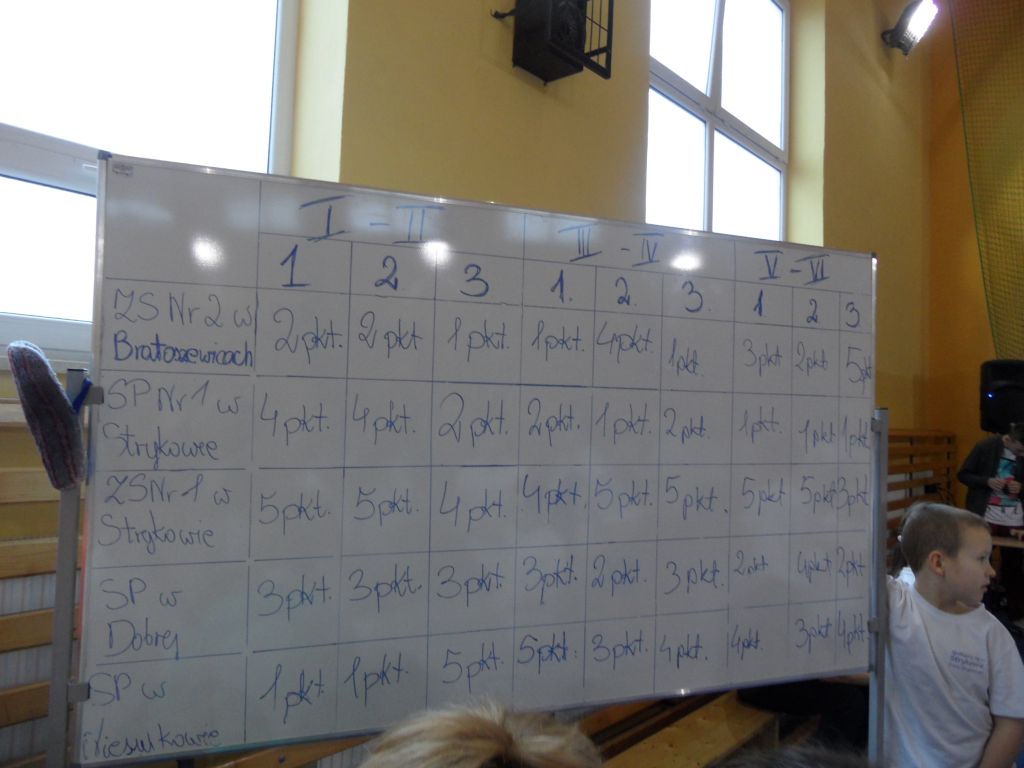 I - II III - IV V - VI
1 2 3 1. 2. 3. 1 2 3
ZS Nr 2 w
Bratoszewicach 2pkt. 2pkt 1pkt. 1pkt. 4pkt. 1pkt. 3pkt 2pkt 5pkt
SP Nr 1 w
Strykowie 4pkt. 4pkt. 2pkt. 2pkt. 1pkt. 2pkt. 1pkt. 1pkt 1pkt
ZS Nr 1 w
Strykowie 5pkt. 5pkt. 4pkt. 4pkt. 5pkt. 5pkt. 5pkt 5pkt 3pkt
SP w
Dobrej 3pkt. 3pkt. 3pkt 3pkt. 2pkt. 3pkt. 2pkt. 4pkt 2pkt
SP w
Niesułkowie 1pkt. 1pkt. 5pkt. 5pkt. 3pkt. 4pkt. 4pkt. 3pkt 4pkt.